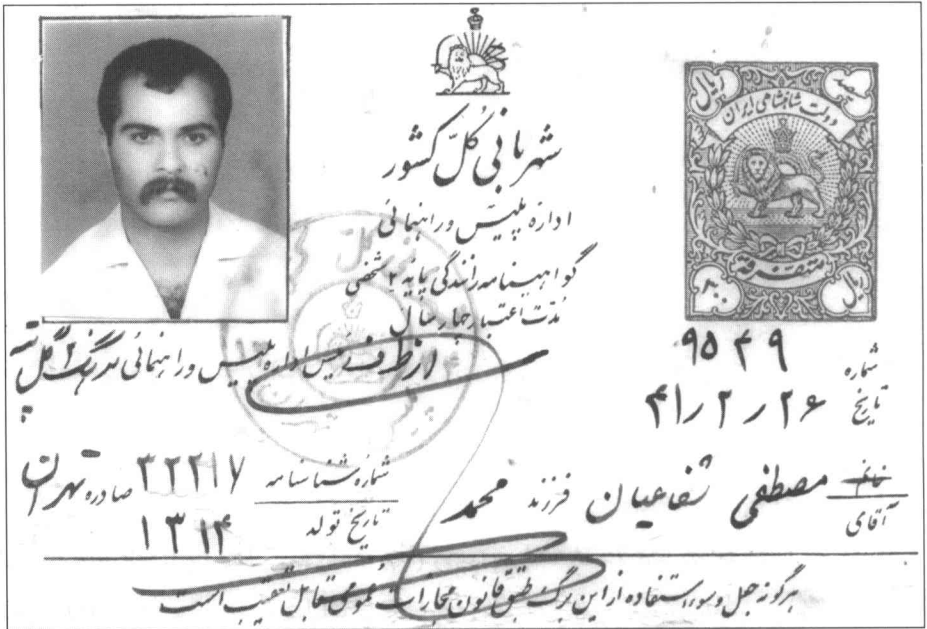 شهربانی کل کشور
اداره پلیس و راهنمائی
گواهینامه رانندگی پایه ۲ شخصی
مدت اعتبار چهار سال
از طرف رئیس اداره پلیس و راهنمائی
ریال
دولت شاهنشاهی ایران
متفرقه
ریال
شماره ۹۵۴۹
تاریخ ۲۶ ر ۲ ر ۴۱
خانم
آقای مصطفی شعاعیان فرزند محمد
شماره شناسنامه ۲۲۲۱۷ صادره تهران
تاریخ تولد ۱۳۱۴
هرگونه جعل و سوء استفاده از این برگ طبق قانون مجازات عمومی قابل تعقیب است